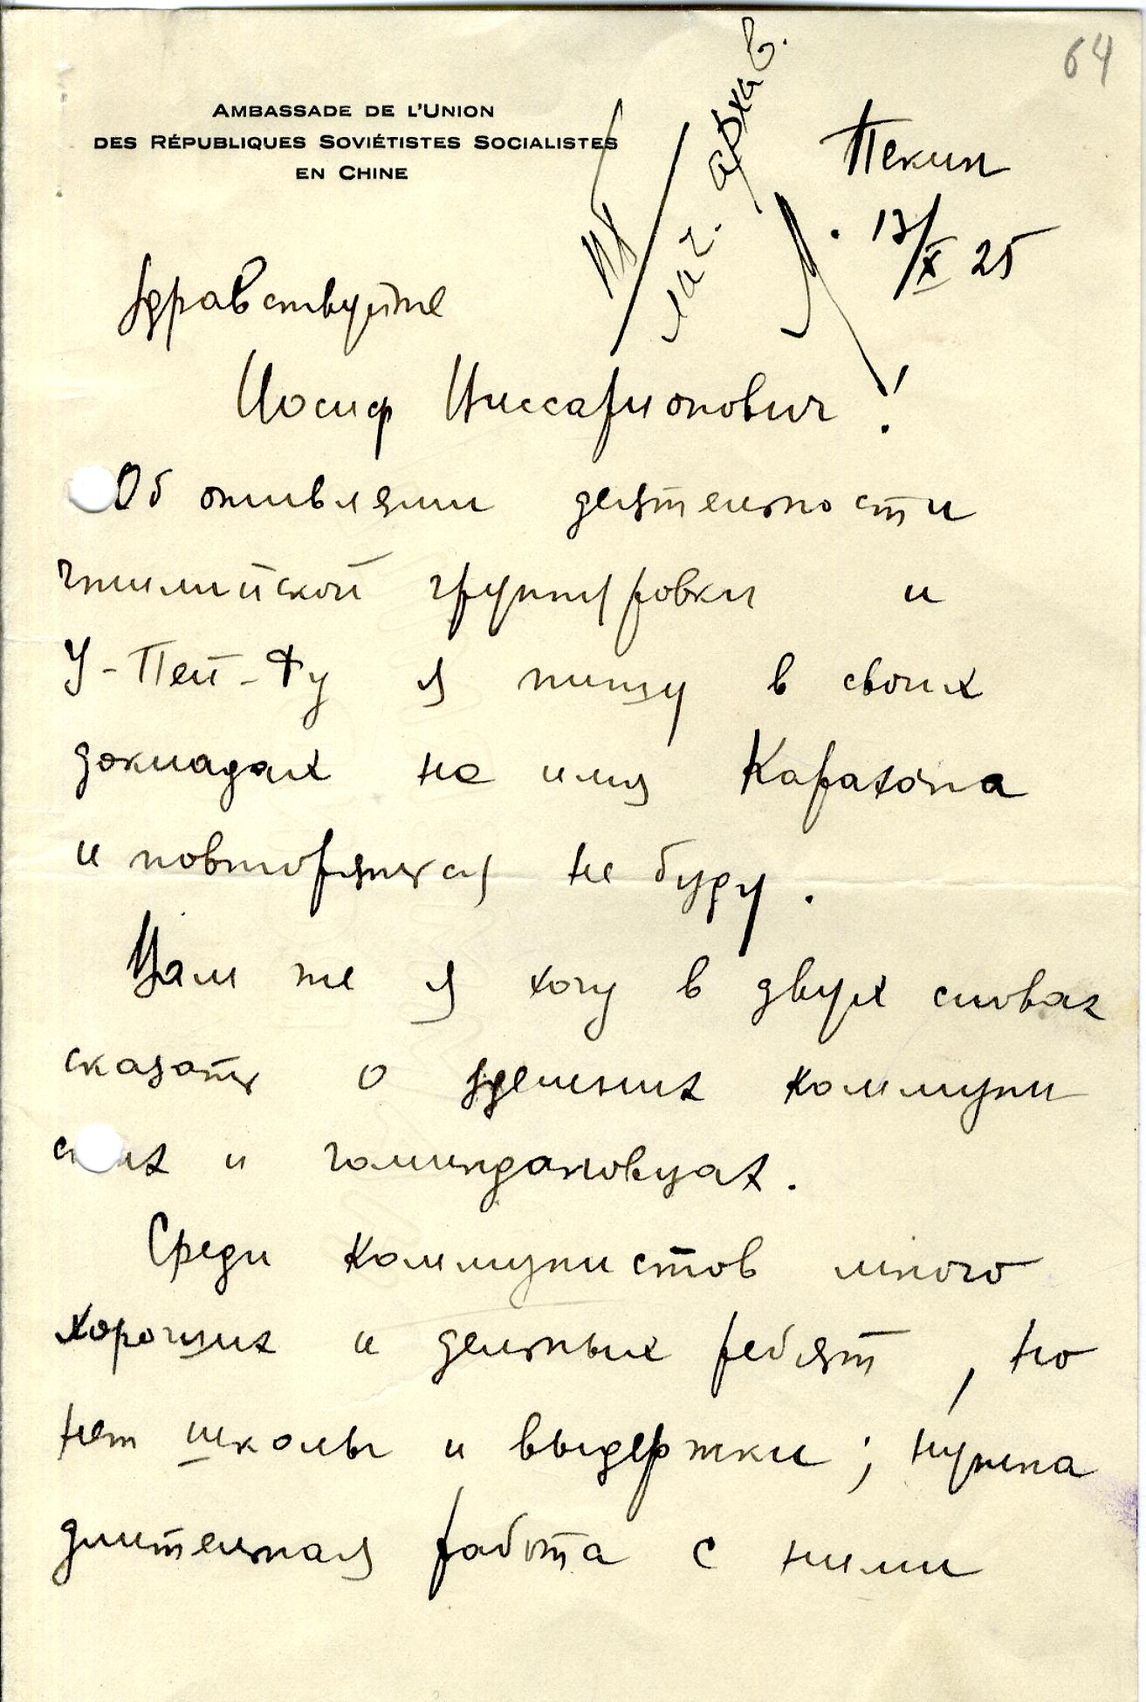 64
AMBASSADE DE L'UNION
DES RÉPUBLIQUES SOVIÉTISTES SOCIALISTES
EN CHINE
Пекин
13/X 25
Здравствуйте
Иосиф Виссарионович!
Об оживлении деятельности
чжилийской группировки и
У-Пей-Фу я пишу в своих
докладах на имя Карахана
и повторяться не буду.
Вам же я хочу в двух словах
сказать о здешних коммуни
стах и гоминдановцах.
Среди коммунистов много
хороших и дельных ребят, но
нет школы и выдержки; нужна
длительная работа с ними